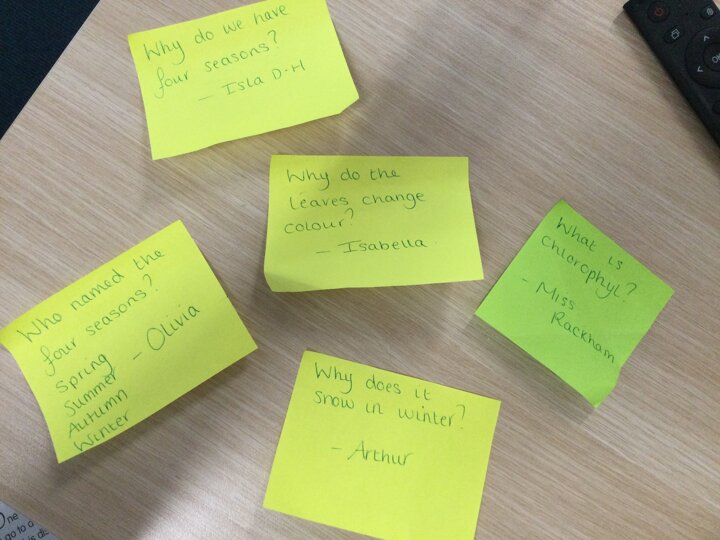 Why do we have
four seasons?
- Isla D.H
Why do the
leaves change
colour?
- Isabella.
What is
chlorophyl?
- Miss
Rackham
Who named the
four seasons?
Spring
Summer - Olivia
Autumn
Winter
Why does it
snow in winter?
- Arthur
One
go to a